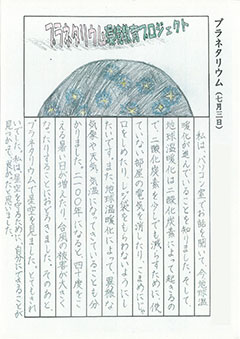 プラネタリウム(七月三日)
プラネタリウム環境教育プロジェクト
私は、パソコン室でお話を聞いて、今地球温
暖化が進んでいることを知りました。そして、
地球温暖化は二酸化炭素によって起きるの
で、二酸化炭素を少しでも減らすために、使
っていない部屋の電気を消したり、こまめにじゃ
口をしめたり、レジ袋をもらわないようにし
たいです。また、地球温暖化によって、異常な
気象や天気、気温になってきていることも分
かりました。二一〇〇年になると、四十度をこ
える暑い日が増えたり、台風の被害が大きく
なったりすることにおどろきました。そのあと、
プラネタリウムで星空を見ました。とてもきれ
いでした。私は、星空を守るために、自分にできることが
見つかって、良かったと思いました。